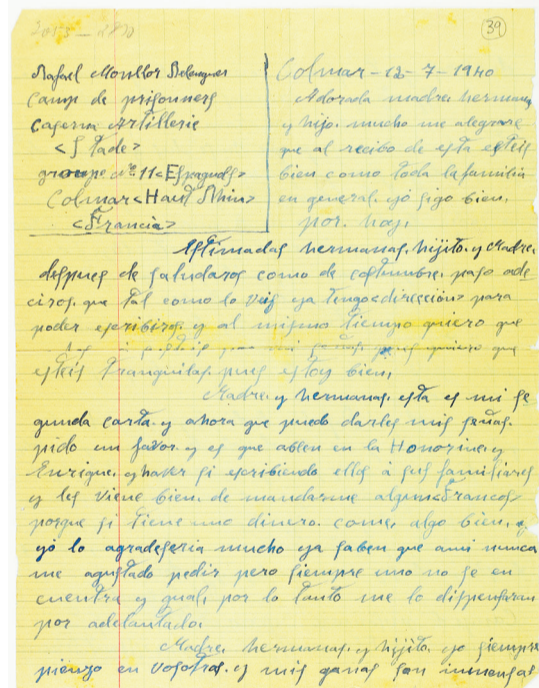 2013 - 2870
39
Rafael Monllor Belenguer
Camp de prisonners
Caserna Artillerie
<Stade>
groupe nº 11 <Espagnols>
Colmar <Haud Rhin>
<Francia>
Colmar - 12 - 7 - 1940
Adorada madre hermanas
y hijo. mucho me alegrare
que al recibo de esta esteis
bien como toda la familia
en general. yó sigo bien,
por. hoy.
Estimadas hermanas. hijito. y Madre.
despues de saludaros como de costumbre. paso ade
ciros. que tal como lo veis ya tengo <direccion> para
poder escribiros. y al mismo tiempo quiero que
quiero que
esteis tranquilas. pues estoy bien,
Madre. y hermanas. esta es mi se
gunda carta. y ahora que puedo darles mis señas.
pido un favor. y es que ablen en la Honorine. y
Enrique. y haver si escribiendo elles á sus familiares
y les viene bien. de mandarme algun <Francos>
porque si tiene uno dinero. come. algo bien, y
yó lo agradeseria mucho ya saben que ami nunca
me agustado pedir pero siempre uno no se en
cuentra y gual. por lo tanto me lo dispensaran
por adelantado.
Madre. hermanas. y hijito. yo siempre
pienzo en vosotros. y mis ganas son inmensas